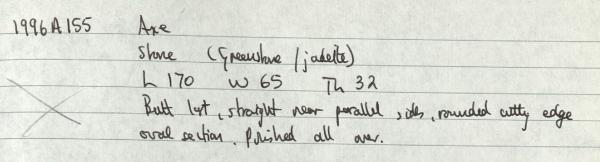 1996 A 155 Axe
Stone (Greenstone / jadeite)
L 170 W 65 Th 32
Butt lost, straight near parallel sides, rounded cutting edge
oval section. Polished all over.